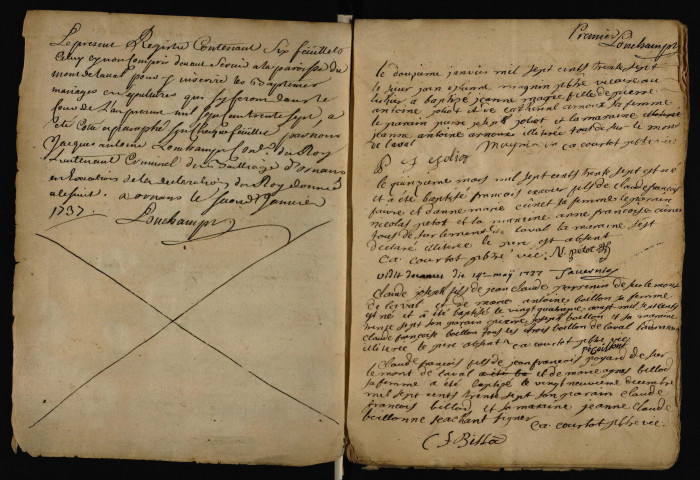 Le present Registre Contenant Six feüillets
Celuy cy non Compris devant Servir a la paroisse du
mont de laval pour y inscrire les Baptemes
mariages et Sepultures qui Se feront dans le
Cour de l'année mil Sept cent trente Sept, a
été Cotté et paraphé Sur Chaque feüillet par nous
Jacques antoine Lonchampt Cons. du Roy
Lieutenant Criminel de Baillage d'Ornans
en Execution de la declaration du Roy donnée
a Ornans le Second Janvier
1737.
Lonchampt
Premier
Lonchampt
le douzieme janvier mil sept cents trente sept
le sieur jean magnin pbre vicaire au
a baptisé jeanne marie fille de pierre
antoine pelot et de catherine arnoux sa femme
le parrain pierre joseph pelot et la maraine
jeanne antoine arnoux illiterée tous de sur le mont
de laval Magnin ca courtot pbre vic
P J pelot
le quinzieme mars mil sept cents trente sept est né
et a été baptisé francois xavier fils de claude francois
faivre et d'anne marie cuenet sa femme le parrain
nicolas petot et la maraine anne francoise cuenet
tous de sur le mont de laval la maraine s'est
declaré illiterée le pere est absent
ca courtot pbre vic. N petot
vidit decanus die 14a maÿ 1737
claude joseph fils de jean claude perrenin de sur le mont
de laval et de marie antoine boillon sa femme
est né et a été baptisé le vingt quatrieme aoust mil sept cents
trente sept son parain pierre joseph boillon et sa maraine
claude francoise boillon tous les trois boillon de laval la maraine
illiterée le pere absent ca courtot pbre vic
claude francois fils de jean francois poyard de sur
le mont de laval et de marie agnes billod
sa femme a été baptisé le vingt neuvieme decembre
mil sept cents trente sept son parain claude
francois billod et sa maraine jeanne claude
boillonne seachant signer
ca courtot pbre vic.
C f Billod